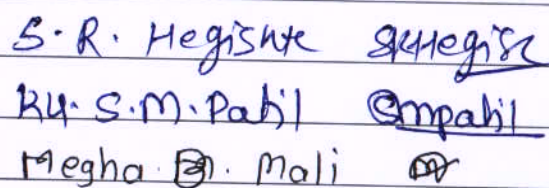 S. R. Hegishte
Ku. S. M. Patil Smpatil
Megha B. Mali